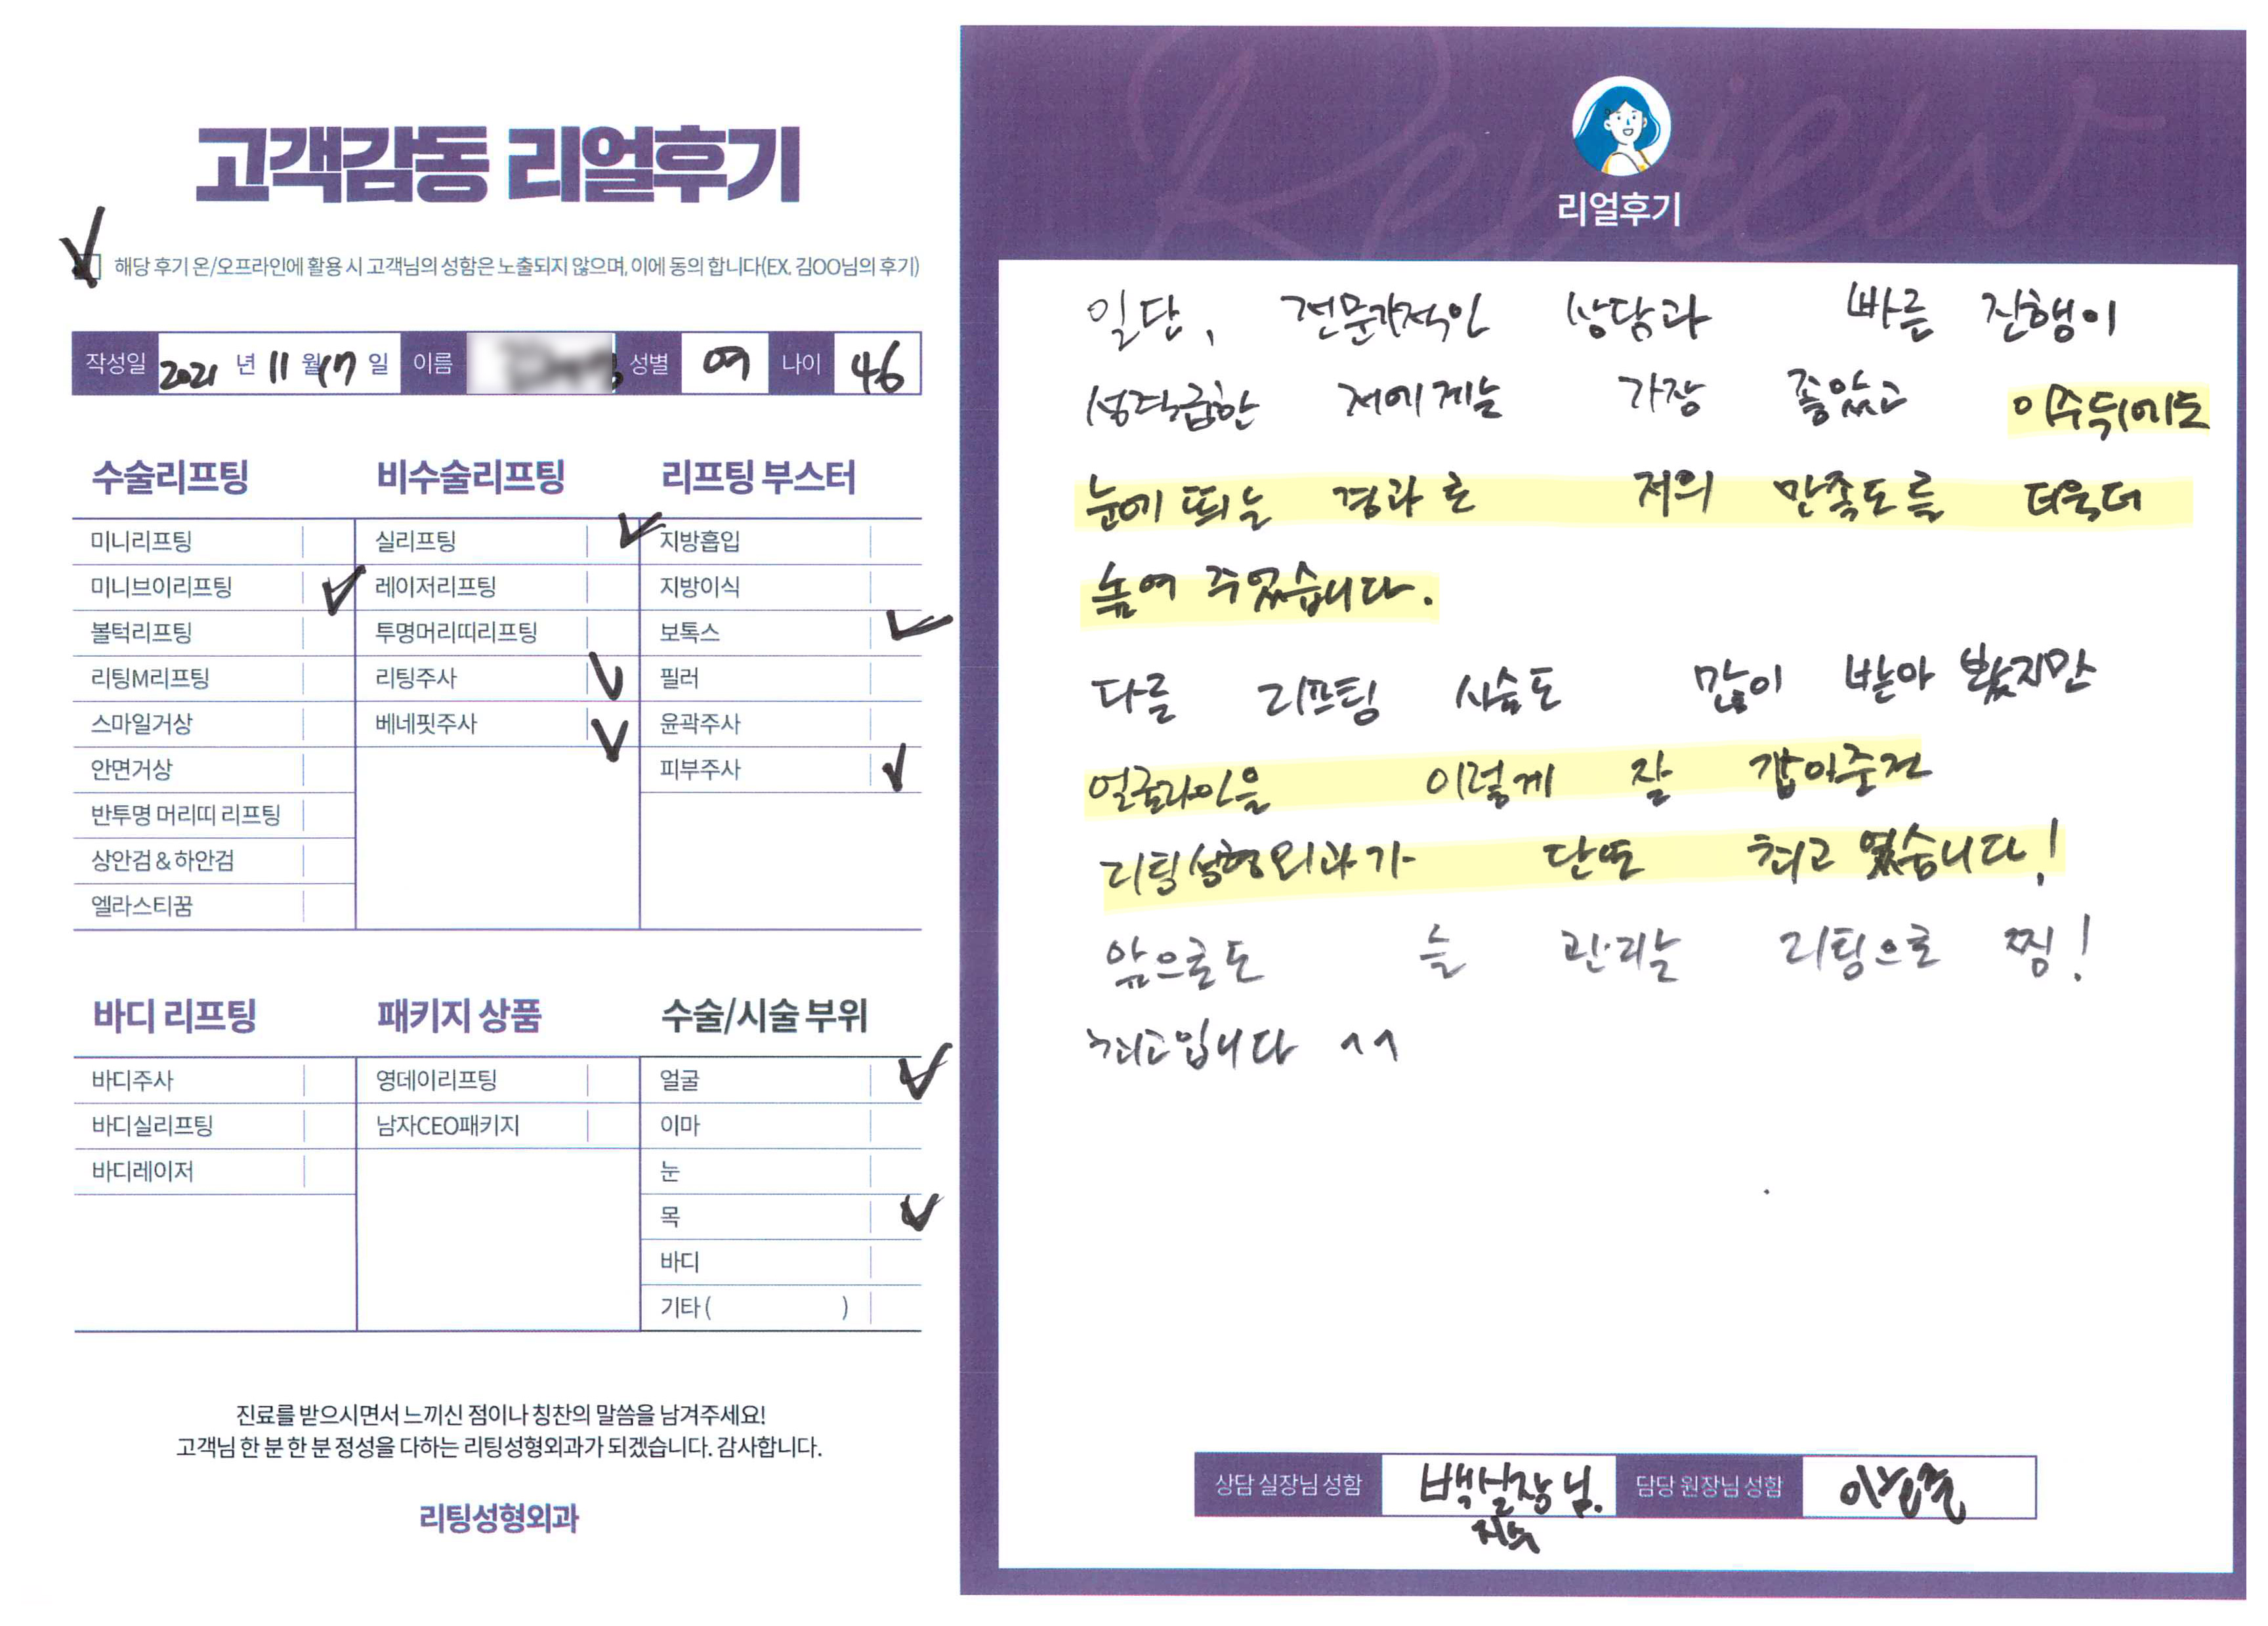 고객감동 리얼후기
해당 후기 온/오프라인에 활용 시 고객님의 성함은 노출되지 않으며, 이에 동의 합니다(EX. 김OO님의 후기)
작성일 2021 년 11 월 17 일 이름 성별 여 나이 46
수술리프팅
미니리프팅
미니브이리프팅
볼턱리프팅
리팅M리프팅
스마일거상
안면거상
반투명 머리띠 리프팅
상안검 & 하안검
엘라스티꿈
비수술리프팅
실리프팅
레이저리프팅
투명머리띠리프팅
리팅주사
베네핏주사
리프팅 부스터
지방흡입
지방이식
보톡스
필러
윤곽주사
피부주사
바디 리프팅
바디주사
바디실리프팅
바디레이저
패키지 상품
영데이리프팅
남자CEO패키지
수술/시술 부위
얼굴
이마
눈
목
바디
기타 ( )
진료를 받으시면서 느끼신 점이나 칭찬의 말씀을 남겨주세요!
고객님 한 분 한 분 정성을 다하는 리팅성형외과가 되겠습니다. 감사합니다.
리팅성형외과
Review
리얼후기
일단, 전문가적인 상담과 빠른 진행이
성격급한 저에게는 가장 좋았고 이주뒤에도
눈에 띄는 경과로 저의 만족도를 더욱더
높여 주었습니다.
다른 리프팅 시술도 많이 받아 봤지만
얼굴라인을 이렇게 잘 잡아준건
리팅성형외과가 단연 최고 였습니다!
앞으로도 늘 관리는 리팅으로 찜!
최고입니다 ^^
상담 실장님 성함 백실장님. 담당 원장님 성함